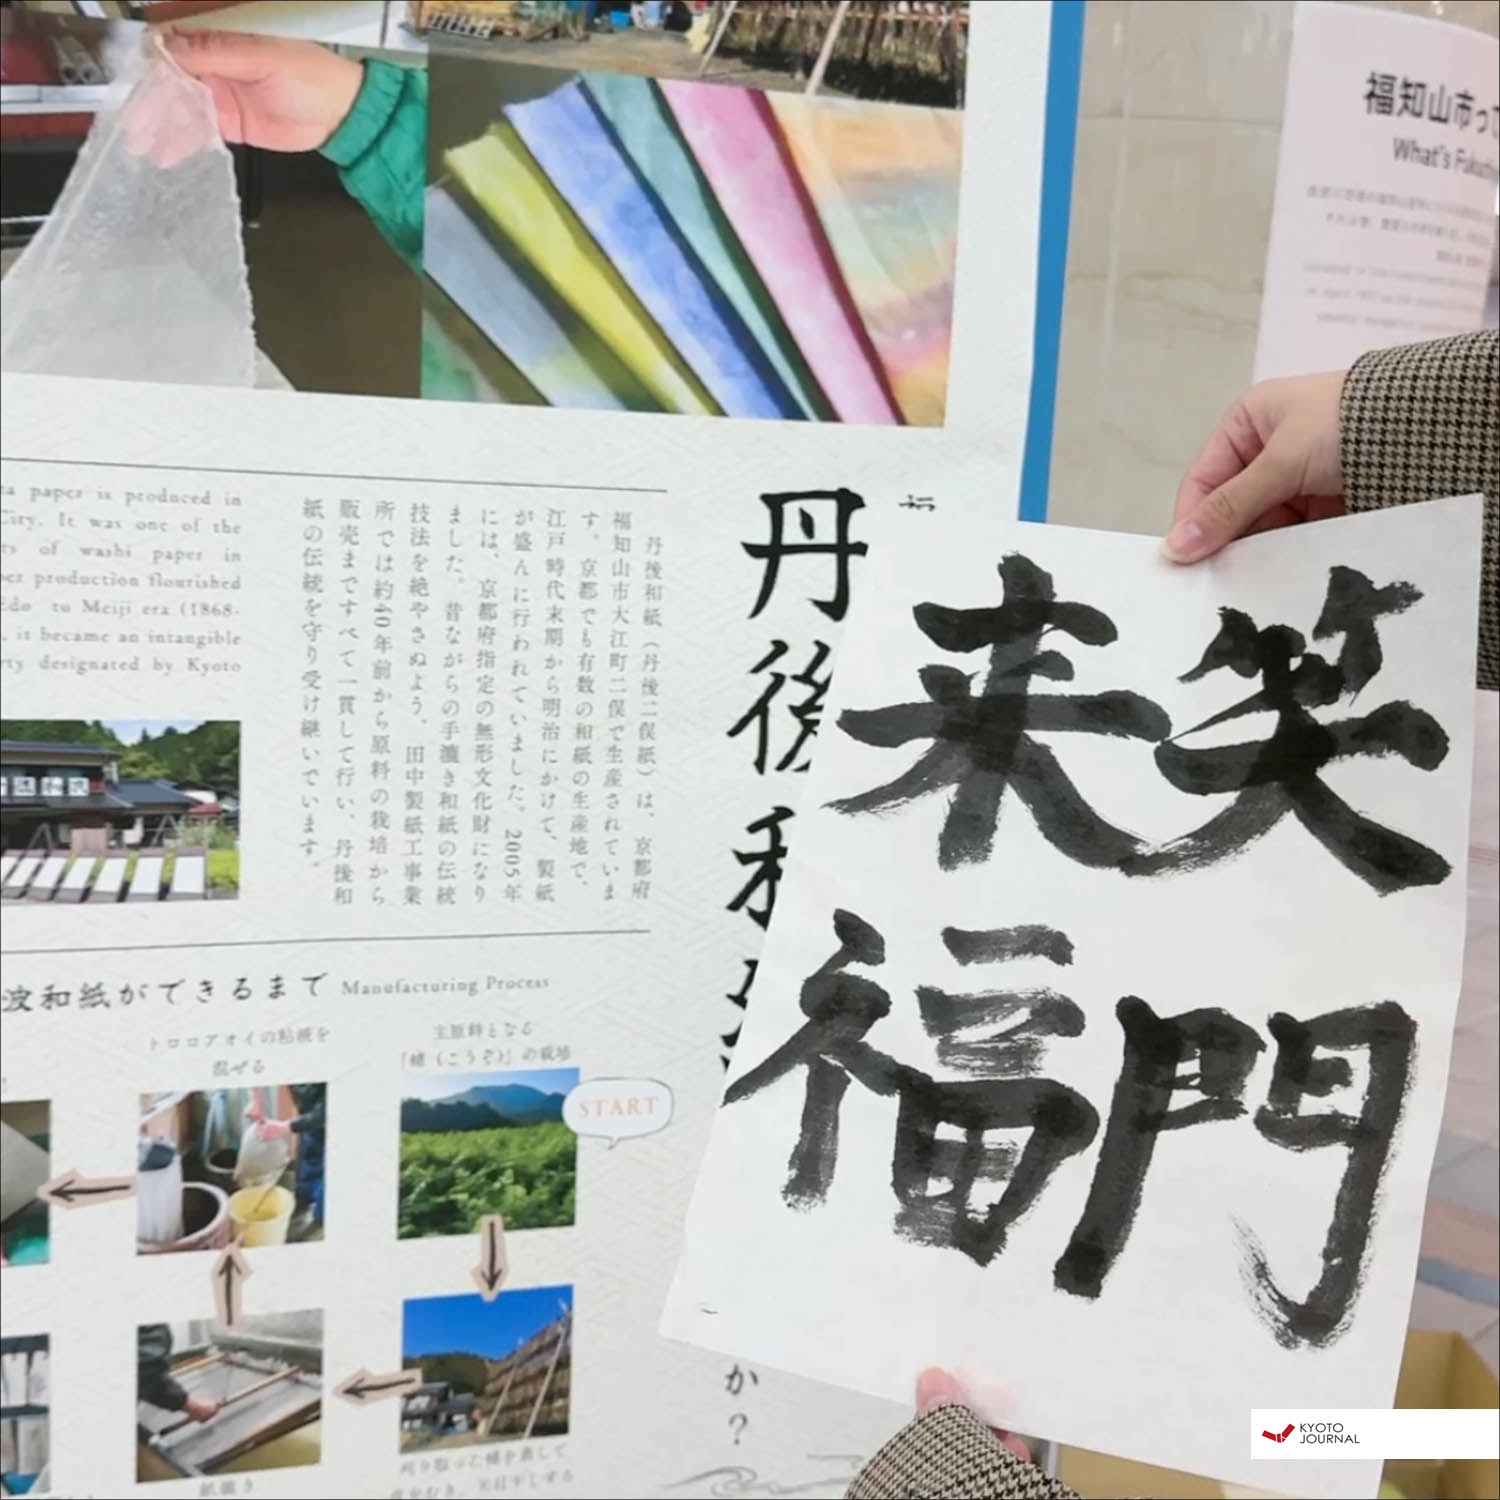 福知山市って
What's Fukuchi
笑門
来福
丹後和
か?
丹後和紙(丹後二俣紙)は、京都府
福知山市大江町二俣で生産されていま
す。京都でも有数の和紙の生産地で、
江戸時代末期から明治にかけて、製紙
が盛んに行われていました。2005年
には、京都府指定の無形文化財になり
ました。昔ながらの手漉き和紙の伝統
技法を絶やさぬよう、田中製紙工事業
所では約40年前から原料の栽培から
販売まですべて一貫して行い、丹後和
紙の伝統を守り受け継いでいます。
ta paper is produced in
City. It was one of the
rs of washi paper in
per production flourished
Edo to Meiji era (1868-
, it became an intangible
rty designated by Kyoto
波和紙ができるまで Manufacturing Process
主原料となる
「楮(こうぞ)」の栽培
START
トロロアオイの粘液を
混ぜる
刈り取った楮を蒸して
皮をむき、天日干しする
紙漉き
KYOTO
JOURNAL